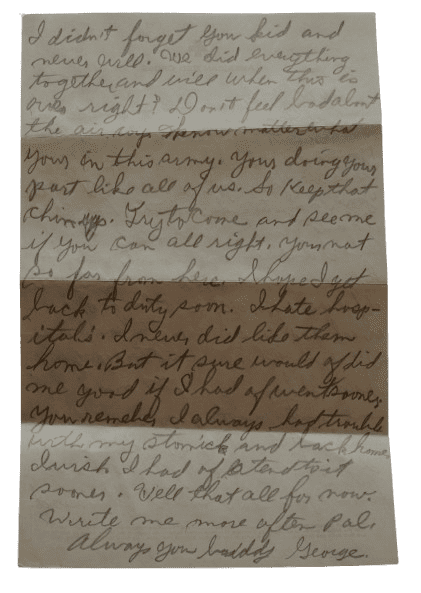 I didn't forget you kid and
never will. We did everything
together, and will when this is
over right? Don't feel bad about
the air
your in this army. Your doing your
part like all of us. So keep that
chin up. Try to come and see me
if you can all right. Your not
so far from here. I hope I get
back to duty soon. I hate hosp-
itals. I never did like them
home. But it sure would of did
me good if I had of went sooner.
You remeber I always had trouble
with my stomick and back home
I wish I had of atend to it
sooner. Well that all for now.
Write me more often Pal.
Always you buddy George.